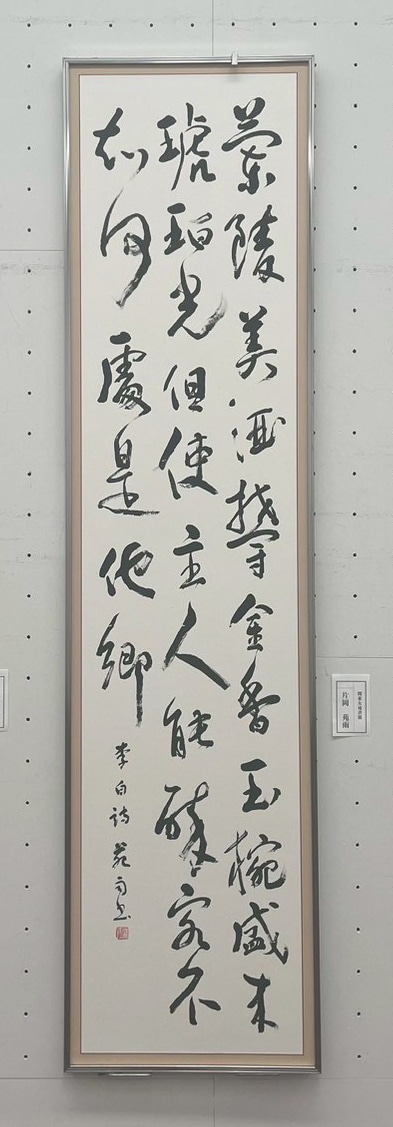 蘭陵美酒欝金香玉椀盛来
琥珀光但使主人能酔客不
知何處是他郷
李白詩 苑雨書
片岡 苑雨